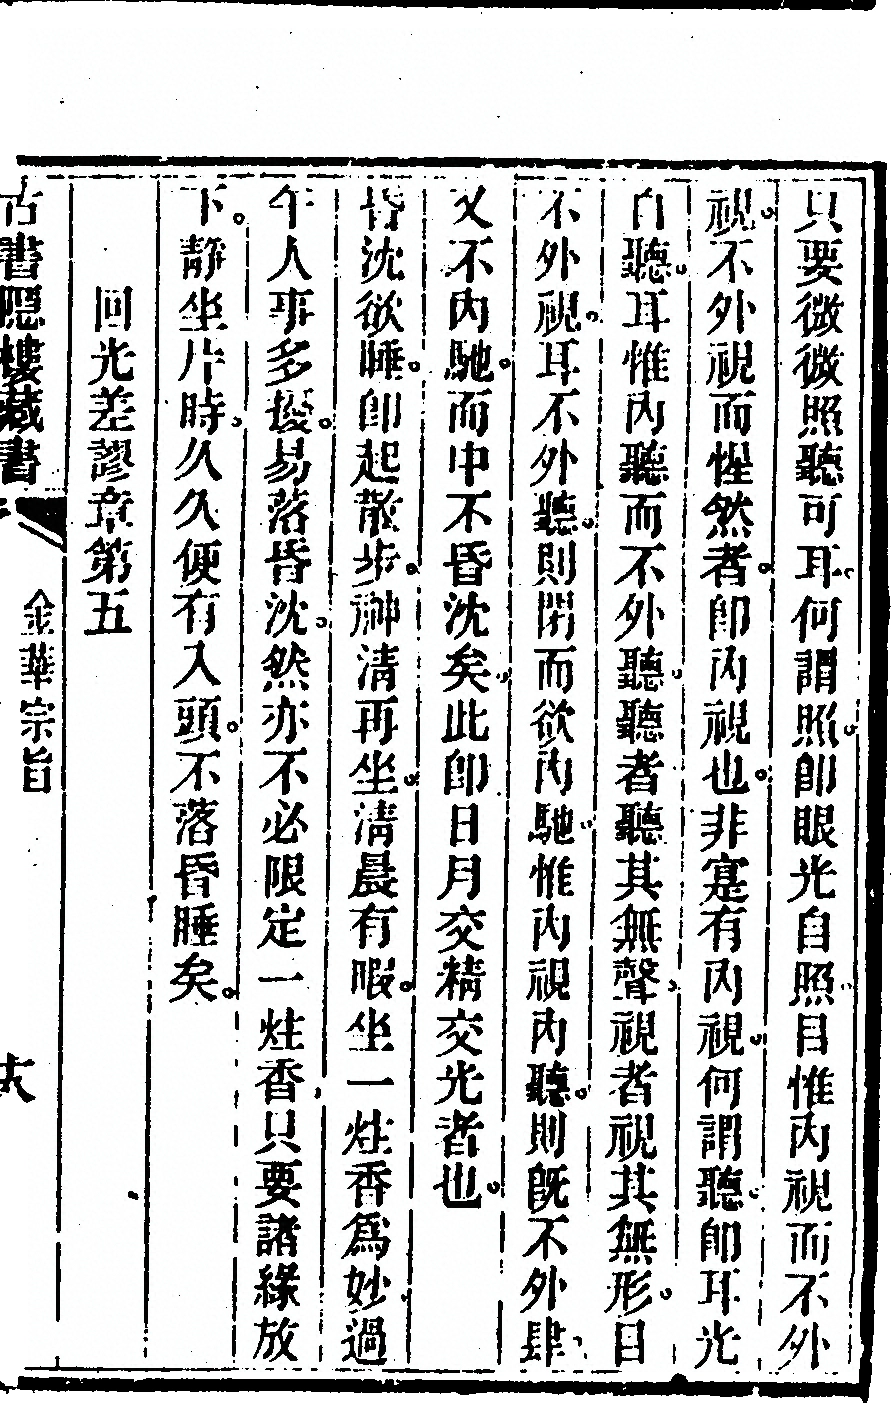 只要微微照聽可耳。何謂照。卽眼光自照。目惟內視而不外
視。不外視而惺然者。卽內視也。非寔有內視。何謂聽。卽耳光
自聽。耳惟內聽而不外聽。聽者聽其無聲。視者視其無形。目
不外視。耳不外聽。則閉而欲內馳。惟內視內聽。則旣不外肆。
又不內馳。而中不昏沈矣。此卽日月交精交光者也。
昏沈欲睡。卽起散步。神清再坐。清晨有暇。坐一炷香爲妙。過
午人事多擾。易落昏沈。然亦不必限定一炷香。只要諸緣放
下。靜坐片時。久久便有入頭。不落昏睡矣。
回光差謬章第五
古書隱樓藏書 金華宗旨 十八